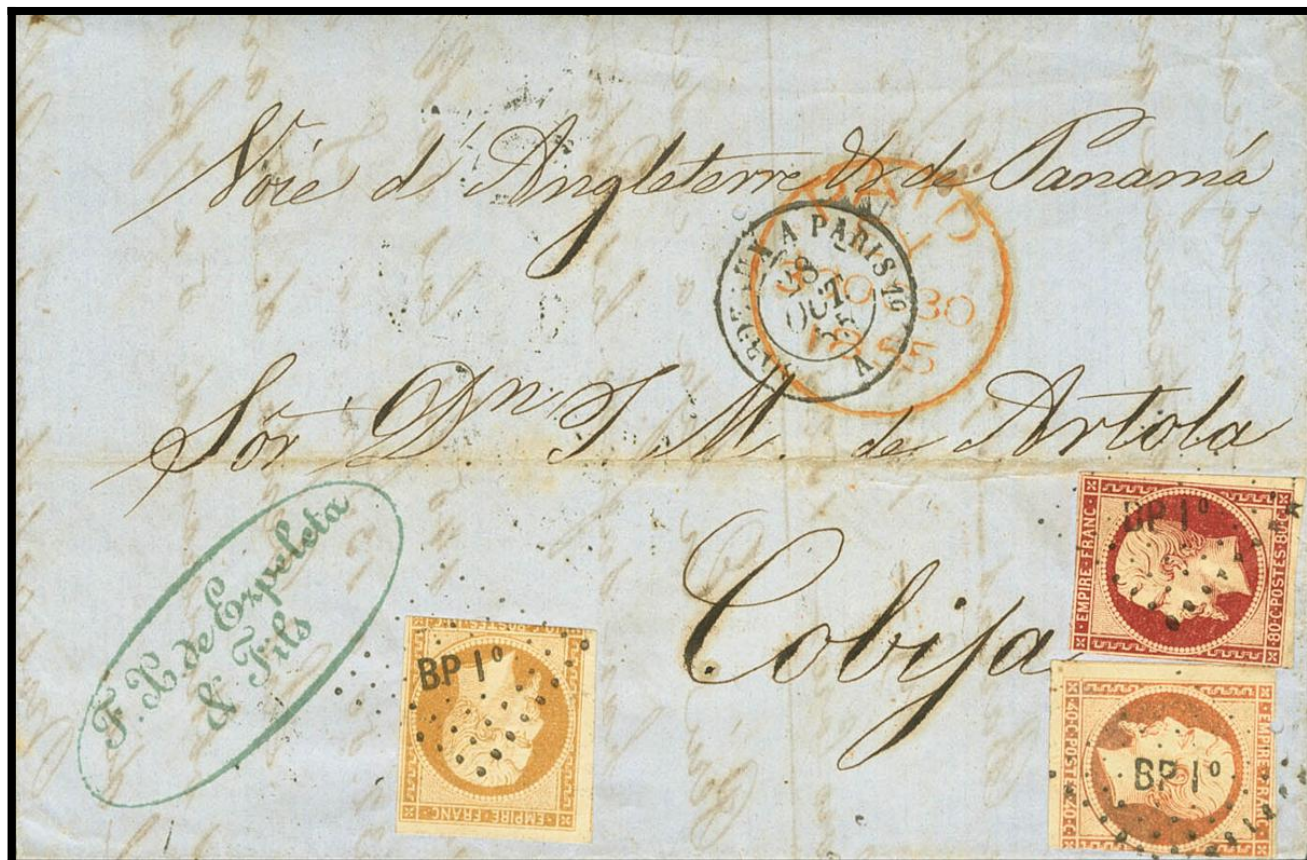 Voie d'Angleterre & de Panamá
PAID
BORDEAUX A PARIS 1º
28
OCT
55
A
30
1855
Sor Dn J. M. de Artola
Cobija
F. X. de Ezpeleta
& Fils
BP 1º
EMPIRE · FRANC ·
BP 1º
EMPIRE · FRANC ·
80 · C · POSTES · 80 · C
BP 1º
EMPIRE · FRANC ·
40 · C · POSTES · 40 · C